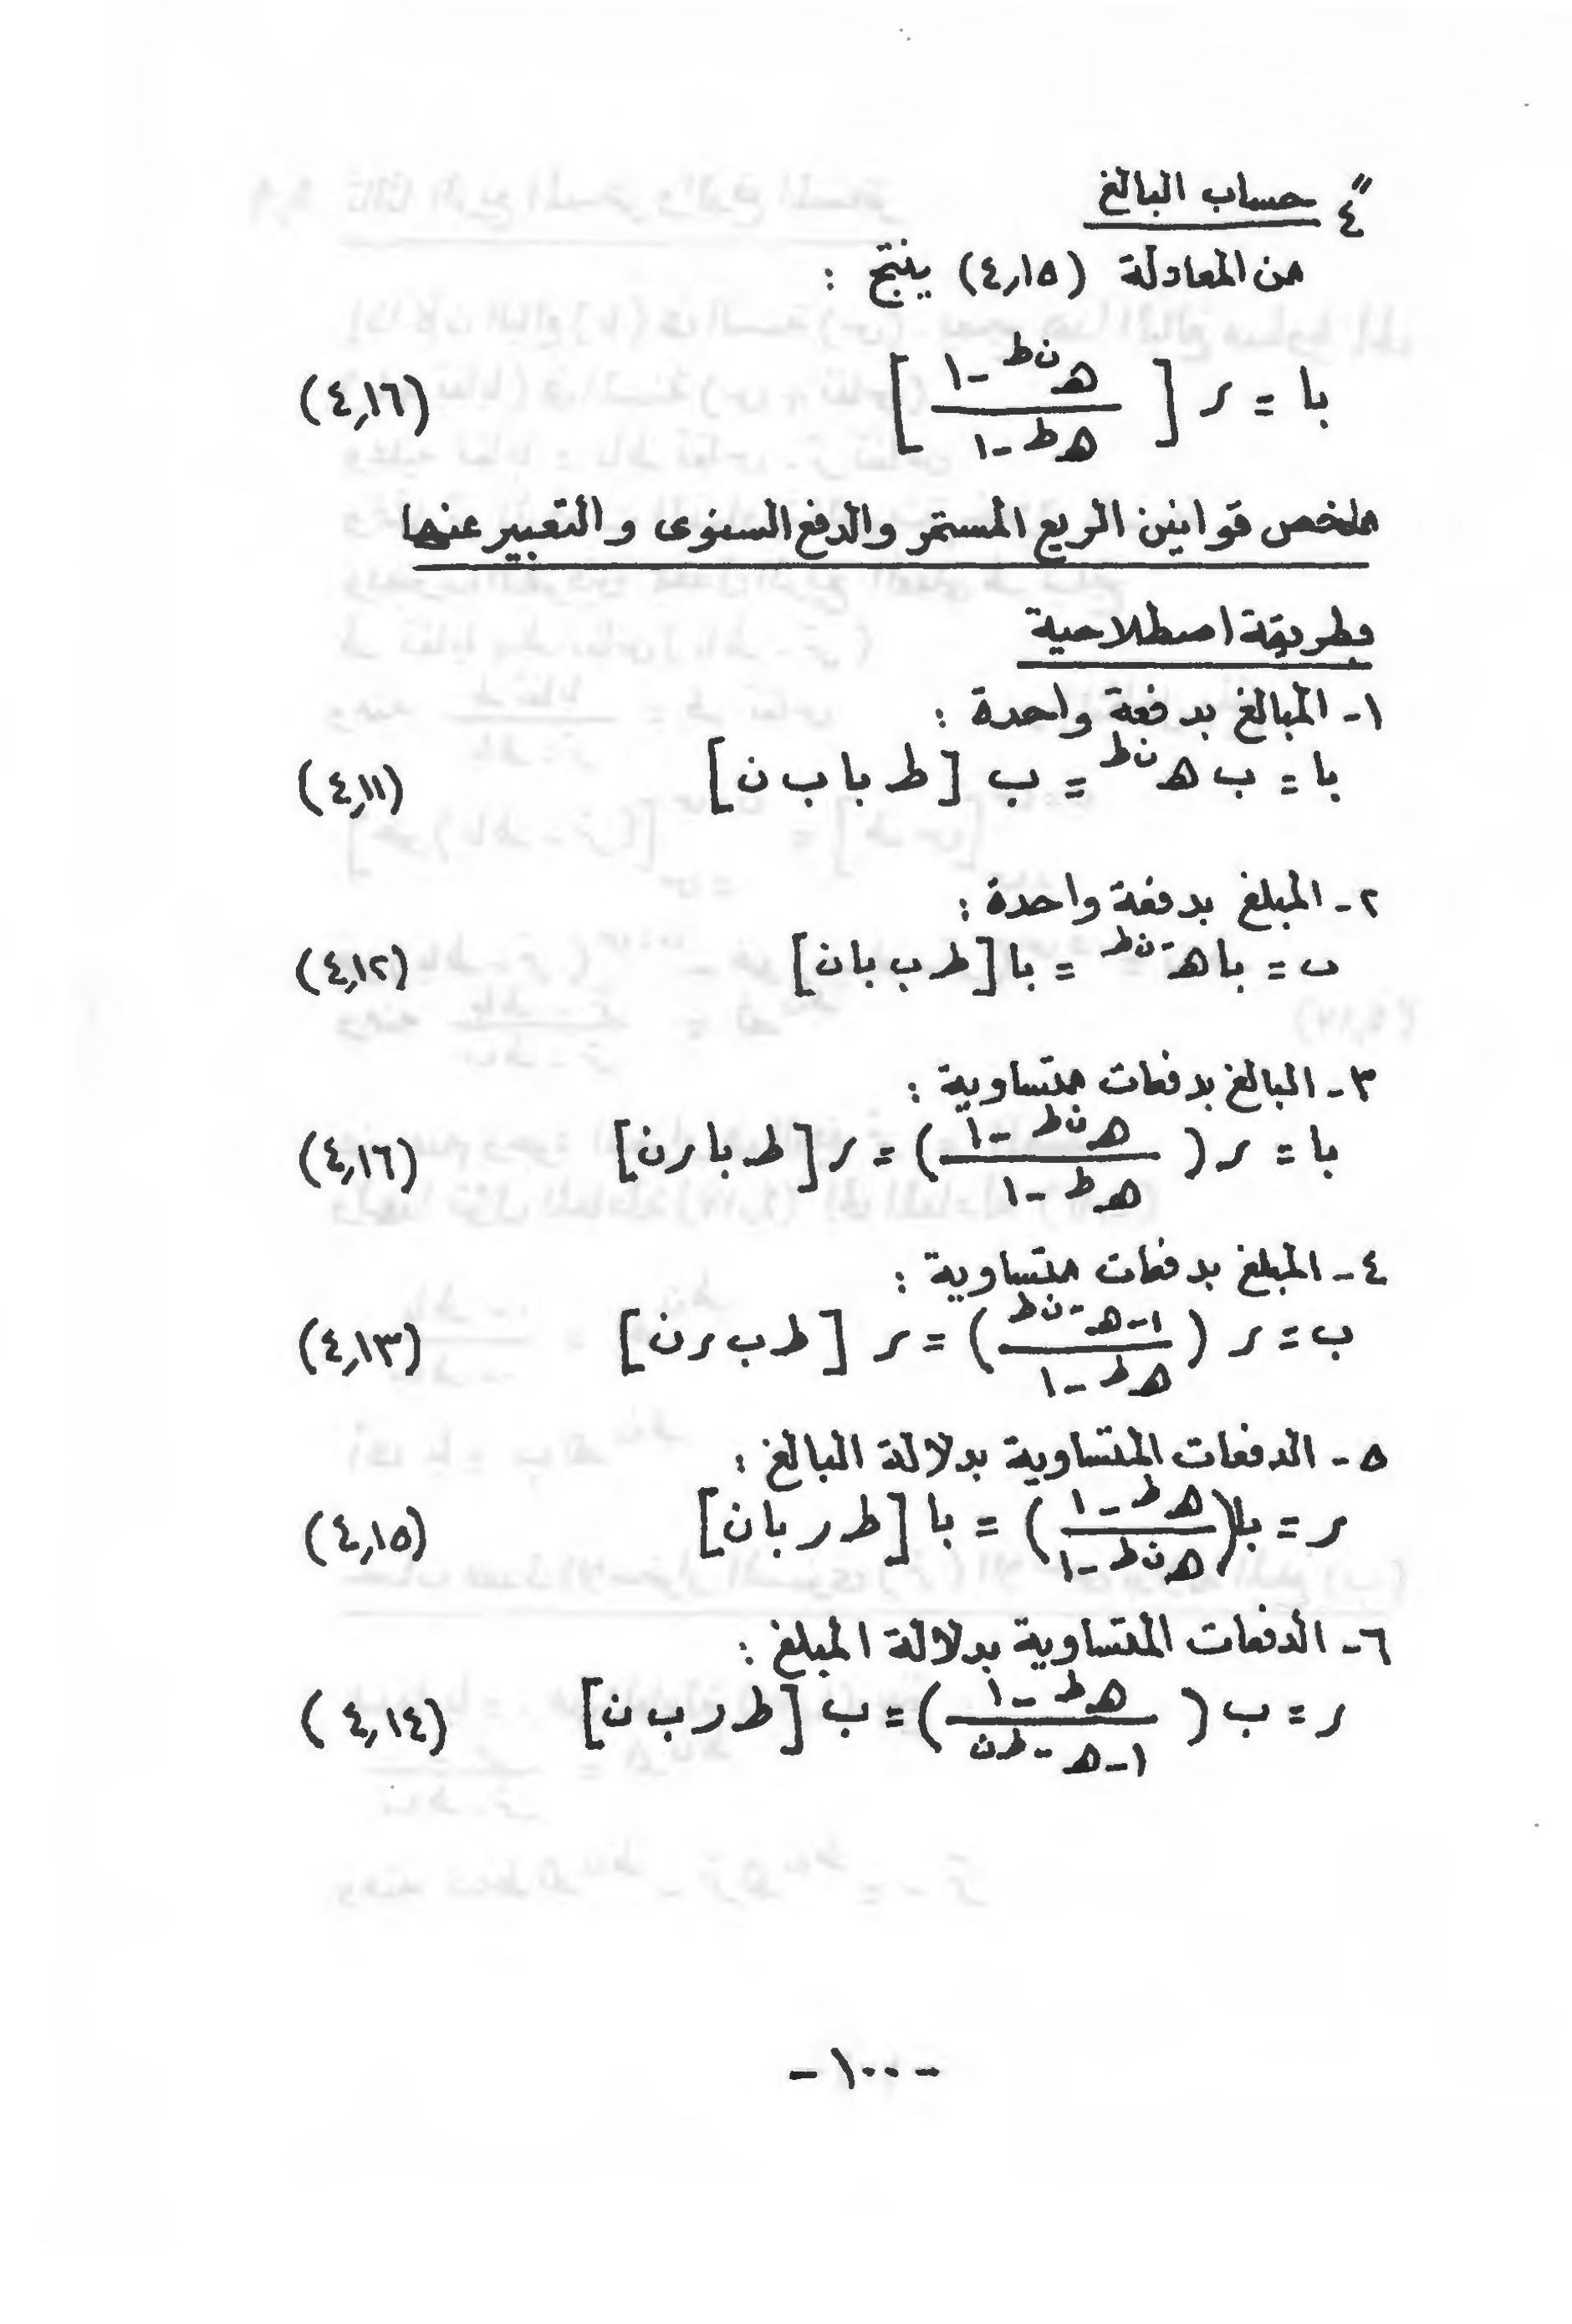 ٤" حساب البالغ
من المعادلة (٤,١٥) ينتج :
با = ر [ (هـ^ن‌ط - ١) / (هـ^ط - ١) ] (٤,١٦)
ملخص قوانين الريع المستمر والدفع السنوى والتعبير عنها
بطريقة اصطلاحية
١- المبالغ بدفعة واحدة :
با = ب هـ^ن‌ط = ب [ ط با ب ن ] (٤,١١)
٢- المبلغ بدفعة واحدة :
ب = با هـ^-ن‌ط = با [ ط ب با ن ] (٤,١٢)
٣- البالغ بدفعات متساوية :
با = ر ( (هـ^ن‌ط - ١) / (هـ^ط - ١) ) = ر [ ط با ر ن ] (٤,١٦)
٤- المبلغ بدفعات متساوية :
ب = ر ( (١ - هـ^-ن‌ط) / (هـ^ط - ١) ) = ر [ ط ب ر ن ] (٤,١٣)
٥- الدفعات المتساوية بدلالة البالغ :
ر = با ( (هـ^ط - ١) / (هـ^ن‌ط - ١) ) = با [ ط ر با ن ] (٤,١٥)
٦- الدفعات المتساوية بدلالة المبلغ :
ر = ب ( (هـ^ط - ١) / (١ - هـ^-ط‌ن) ) = ب [ ط ر ب ن ] (٤,١٤)
- ١٠٠ -